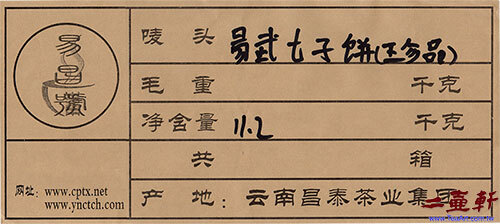 易昌號
唛 头 易武七子饼(珍品)
毛 重 千克
净含量 11.2 千克
共 箱
网址: www.cptx.net
www.ynctch.com
产 地: 云南昌泰茶业集团
二壺軒